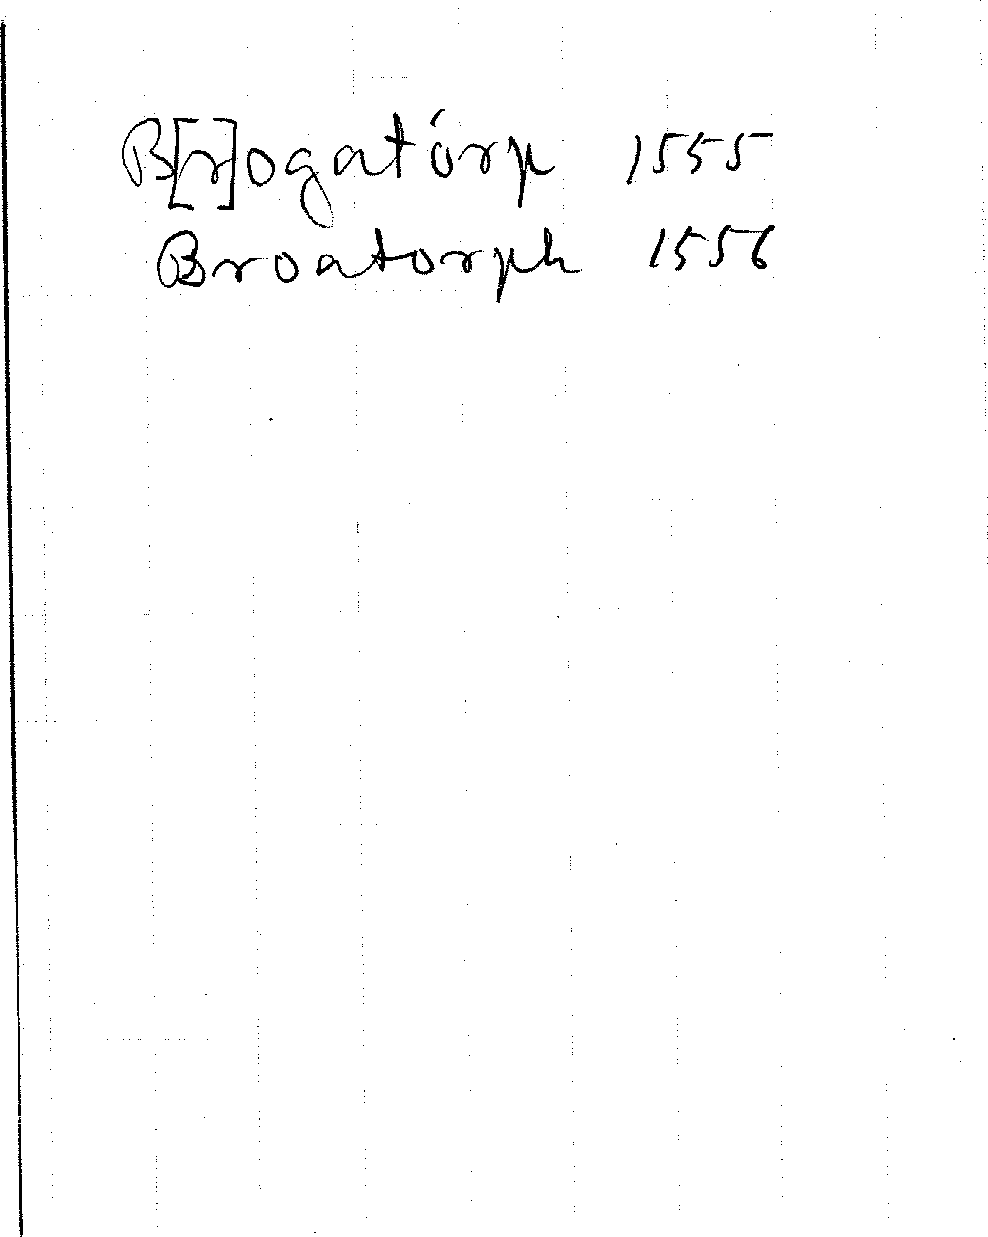 B[r]ogatórp 1555
Broatorph 1556